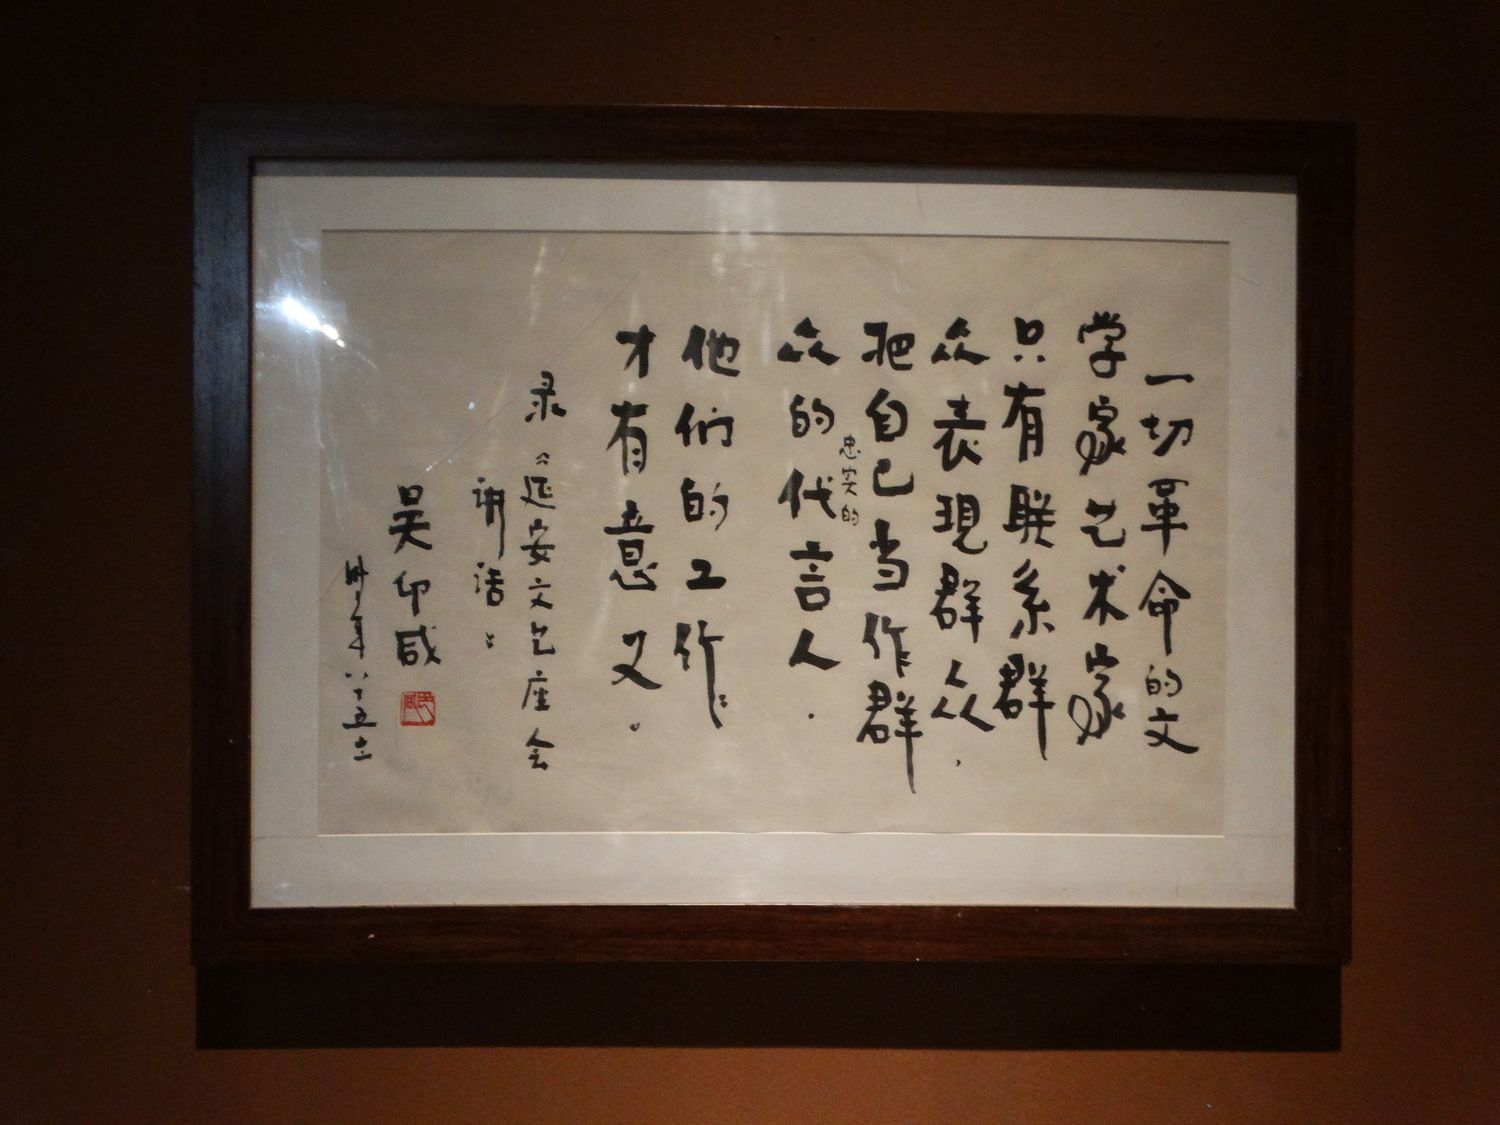 一切革命的文
学家艺术家
只有联系群
众表现群众，
把自己当作群
忠实的
众的代言人．
他们的工作，
才有意义。
录《延安文艺座会
讲话》
吴印咸
时年八十五